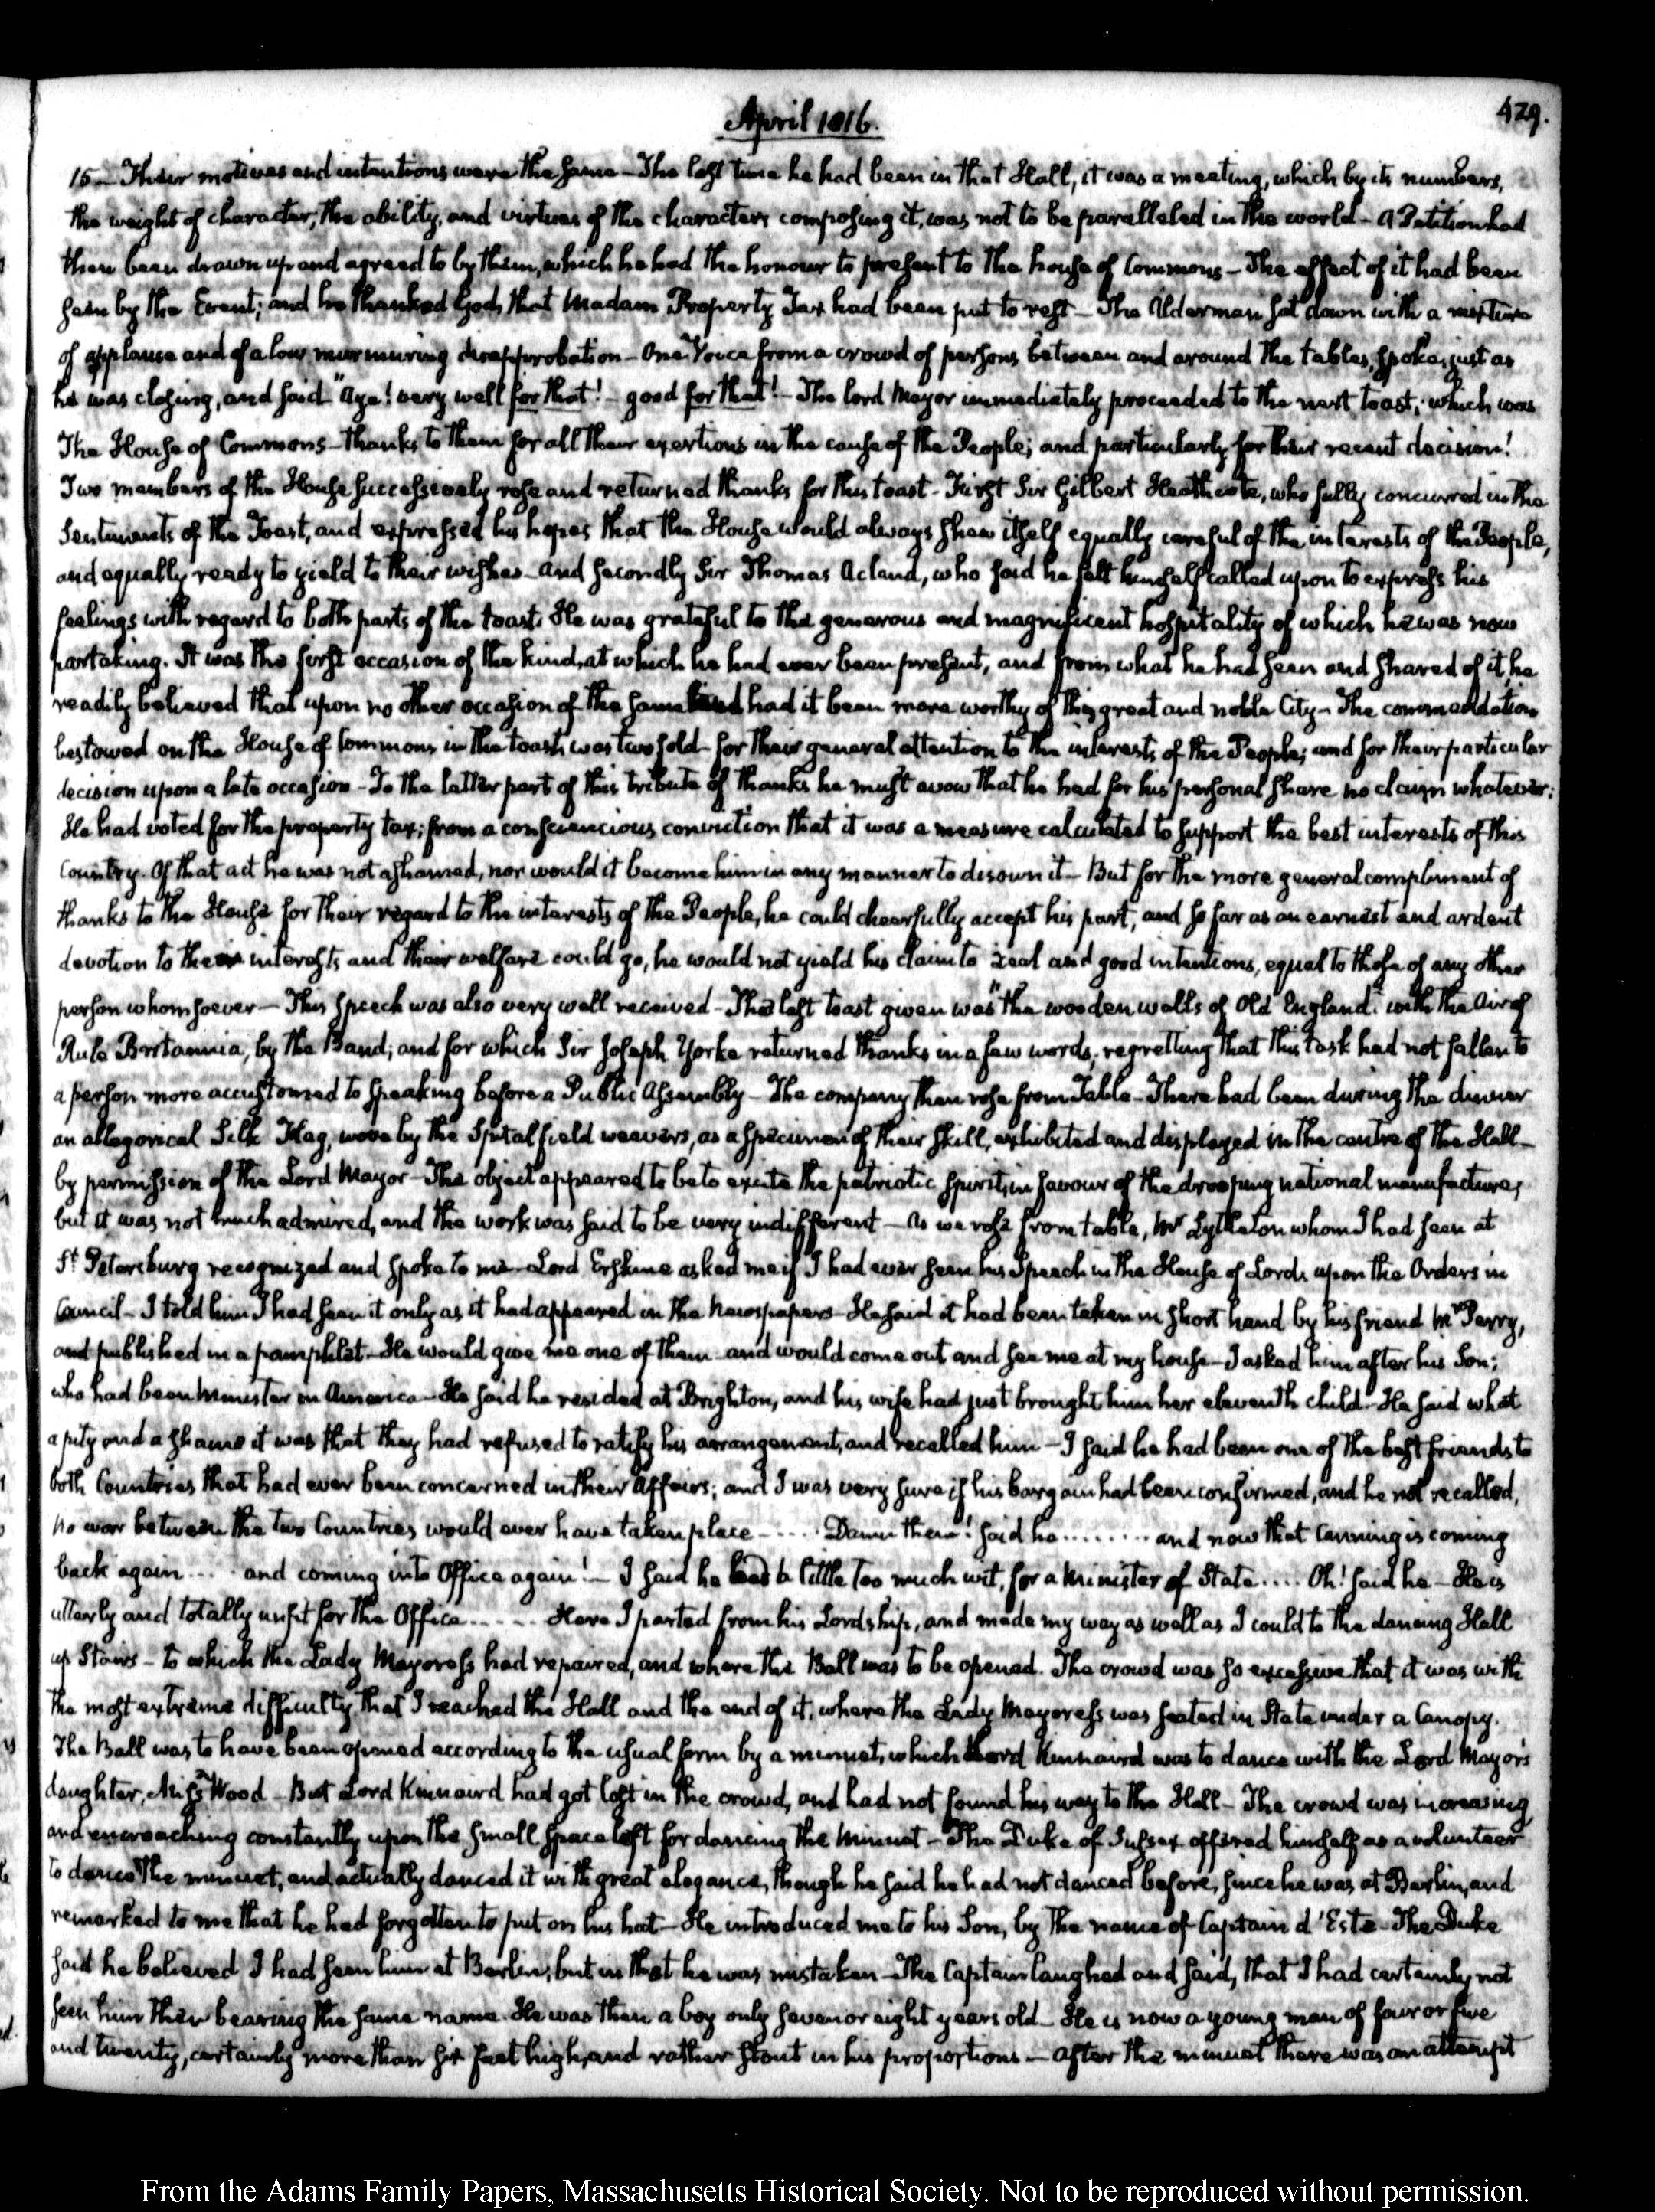 April 1816.
429.
15— Their motives and intentions were the same — The last time he had been in that Hall, it was a meeting, which by its numbers,
the weight of character, the ability, and virtues of the characters composing it, was not to be paralleled in the world — A Petition had
then been drawn up and agreed to by them, which he had the honour to present to the house of Commons — The effect of it had been
seen by the Event; and he thanked God, that Madam Property Tax had been put to rest — The Alderman sat down with a mixture
of applause and of a low murmuring disapprobation — One Voice from a crowd of persons between and around the tables, spoke, just as
he was closing, and said "Aye! very well for that! — good for that! — The lord Mayor immediately proceeded to the next toast; which was
The House of Commons — thanks to them for all their exertions in the cause of the People; and particularly for their recent decision!
Two members of the House successively rose and returned thanks for this toast — First Sir Gilbert Heathcote, who fully concurred in the
Sentiments of the Toast, and expressed his hopes that the House would always shew itself equally careful of the interests of the People,
and equally ready to yield to their wishes — and secondly Sir Thomas Acland, who said he felt himself called upon to express his
feelings with regard to both parts of the toast. He was grateful to the generous and magnificent hospitality of which he was now
partaking. It was the first occasion of the kind, at which he had ever been present, and from what he had seen and shared of it, he
readily believed that upon no other occasion of the same kind had it been more worthy of this great and noble City — The commendation
bestowed on the House of Commons in the toast, was two fold — for their general attention to the interests of the People; and for their particular
decision upon a late occasion — To the latter part of this tribute of thanks he must avow that he had for his personal share no claim whatever;
He had voted for the property tax; from a consciencious conviction that it was a measure calculated to support the best interests of this
Country. Of that act he was not ashamed, nor would it become him in any manner to disown it — But for the more general compliment of
thanks to the House for their regard to the interests of the People, he could chearfully accept his part, and so far as an earnest and ardent
devotion to their interests and their welfare could go, he would not yield his claim to zeal and good intentions, equal to those of any other
person whomsoever — This Speech was also very well received — The last toast given was "the wooden walls of Old England" with the Air of
Rule Britannia, by the Band; and for which Sir Joseph Yorke returned thanks in a few words, regretting that this task had not fallen to
a person more accustomed to speaking before a Public Assembly — The company then rose from Table — There had been during the dinner
an allegorical Silk Flag, wove by the Spitalfield weavers, as a specimen of their skill, exhibited and displayed in the centre of the Hall —
by permission of the Lord Mayor — The object appeared to be to excite the patriotic spirit, in favour of the drooping national manufacture,
but it was not much admired, and the work was said to be very indifferent — As we rose from table, Mr Lyttleton whom I had seen at
St Petersburg recognized and spoke to me — Lord Erskine asked me if I had ever seen his Speech in the House of Lords upon the Orders in
Council — I told him I had seen it only as it had appeared in the Newspapers — He said it had been taken in short hand by his friend Mr Perry,
and published in a pamphlet — He would give me one of them — and would come out and see me at my house — I asked him after his Son;
who had been Minister in America — He said he resided at Brighton, and his wife had just brought him her eleventh child — He said what
a pity and a shame it was that they had refused to ratify his arrangement, and recalled him — I said he had been one of the best friends to
both Countries that had ever been concerned in their affairs; and I was very sure if his bargain had been confirmed, and he not recalled,
no war between the two Countries would ever have taken place — .... Damn them! said he ........ and now that Canning is coming
back again .... and coming into Office again! — I said he had a little too much wit, for a Minister of State .... Oh! said he — He is
utterly and totally unfit for the Office ...... Here I parted from his Lordship, and made my way as well as I could to the dancing Hall
up Stairs — to which the Lady Mayoress had repaired, and where the Ball was to be opened. The crowd was so excessive that it was with
the most extreme difficulty that I reached the Hall and the end of it, where the Lady Mayoress was seated in State under a Canopy.
The Ball was to have been opened according to the usual form by a minuet, which Lord Kinnaird was to dance with the Lord Mayor's
daughter, Miss Wood — But Lord Kinnaird had got lost in the crowd, and had not found his way to the Hall — The crowd was increasing
and encroaching constantly upon the small space left for dancing the Minuet — The Duke of Sussex offered himself as a volunteer
to dance the minuet, and actually danced it with great elegance, though he said he had not danced before, since he was at Berlin, and
remarked to me that he had forgotten to put on his hat — He introduced me to his Son, by the name of Captain d'Este — The Duke
said he believed I had seen him at Berlin; but in that he was mistaken — The Captain laughed and said, that I had certainly not
seen him then bearing the same name. He was then a boy only seven or eight years old — He is now a young man of four or five
and twenty, certainly more than six feet high, and rather stout in his proportions — After the minuet there was an attempt
From the Adams Family Papers, Massachusetts Historical Society. Not to be reproduced without permission.